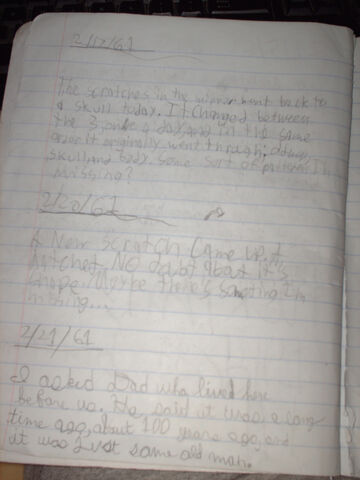 2/17/61
The scratches in the mirror went back to
a skull today. It changed between
the 3, once a day, and in the same
order it originally went through:
skull and body. Some sort of pattern I'm
missing?
2/20/61
A New scratch came up. A
hatchet. NO doubt about it's
shape. Maybe there's something I'm
missing...
2/21/61
I asked Dad who lived here
before us. He said it was a long
time ago, about 100 years ago, and
it was just some old man.